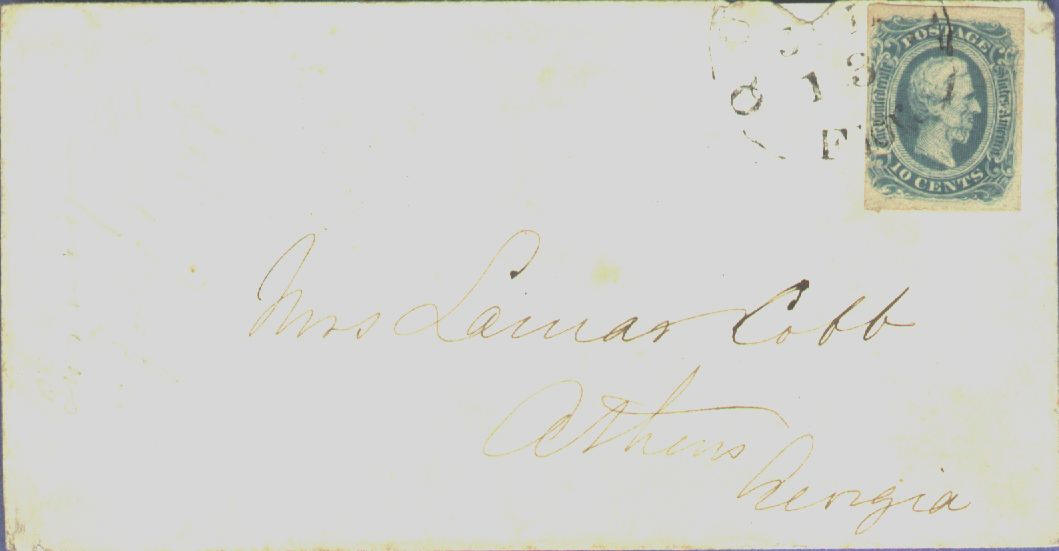 POSTAGE
The Confederate States of America
10 CENTS
Mrs Lamar Cobb
Athens
Georgia